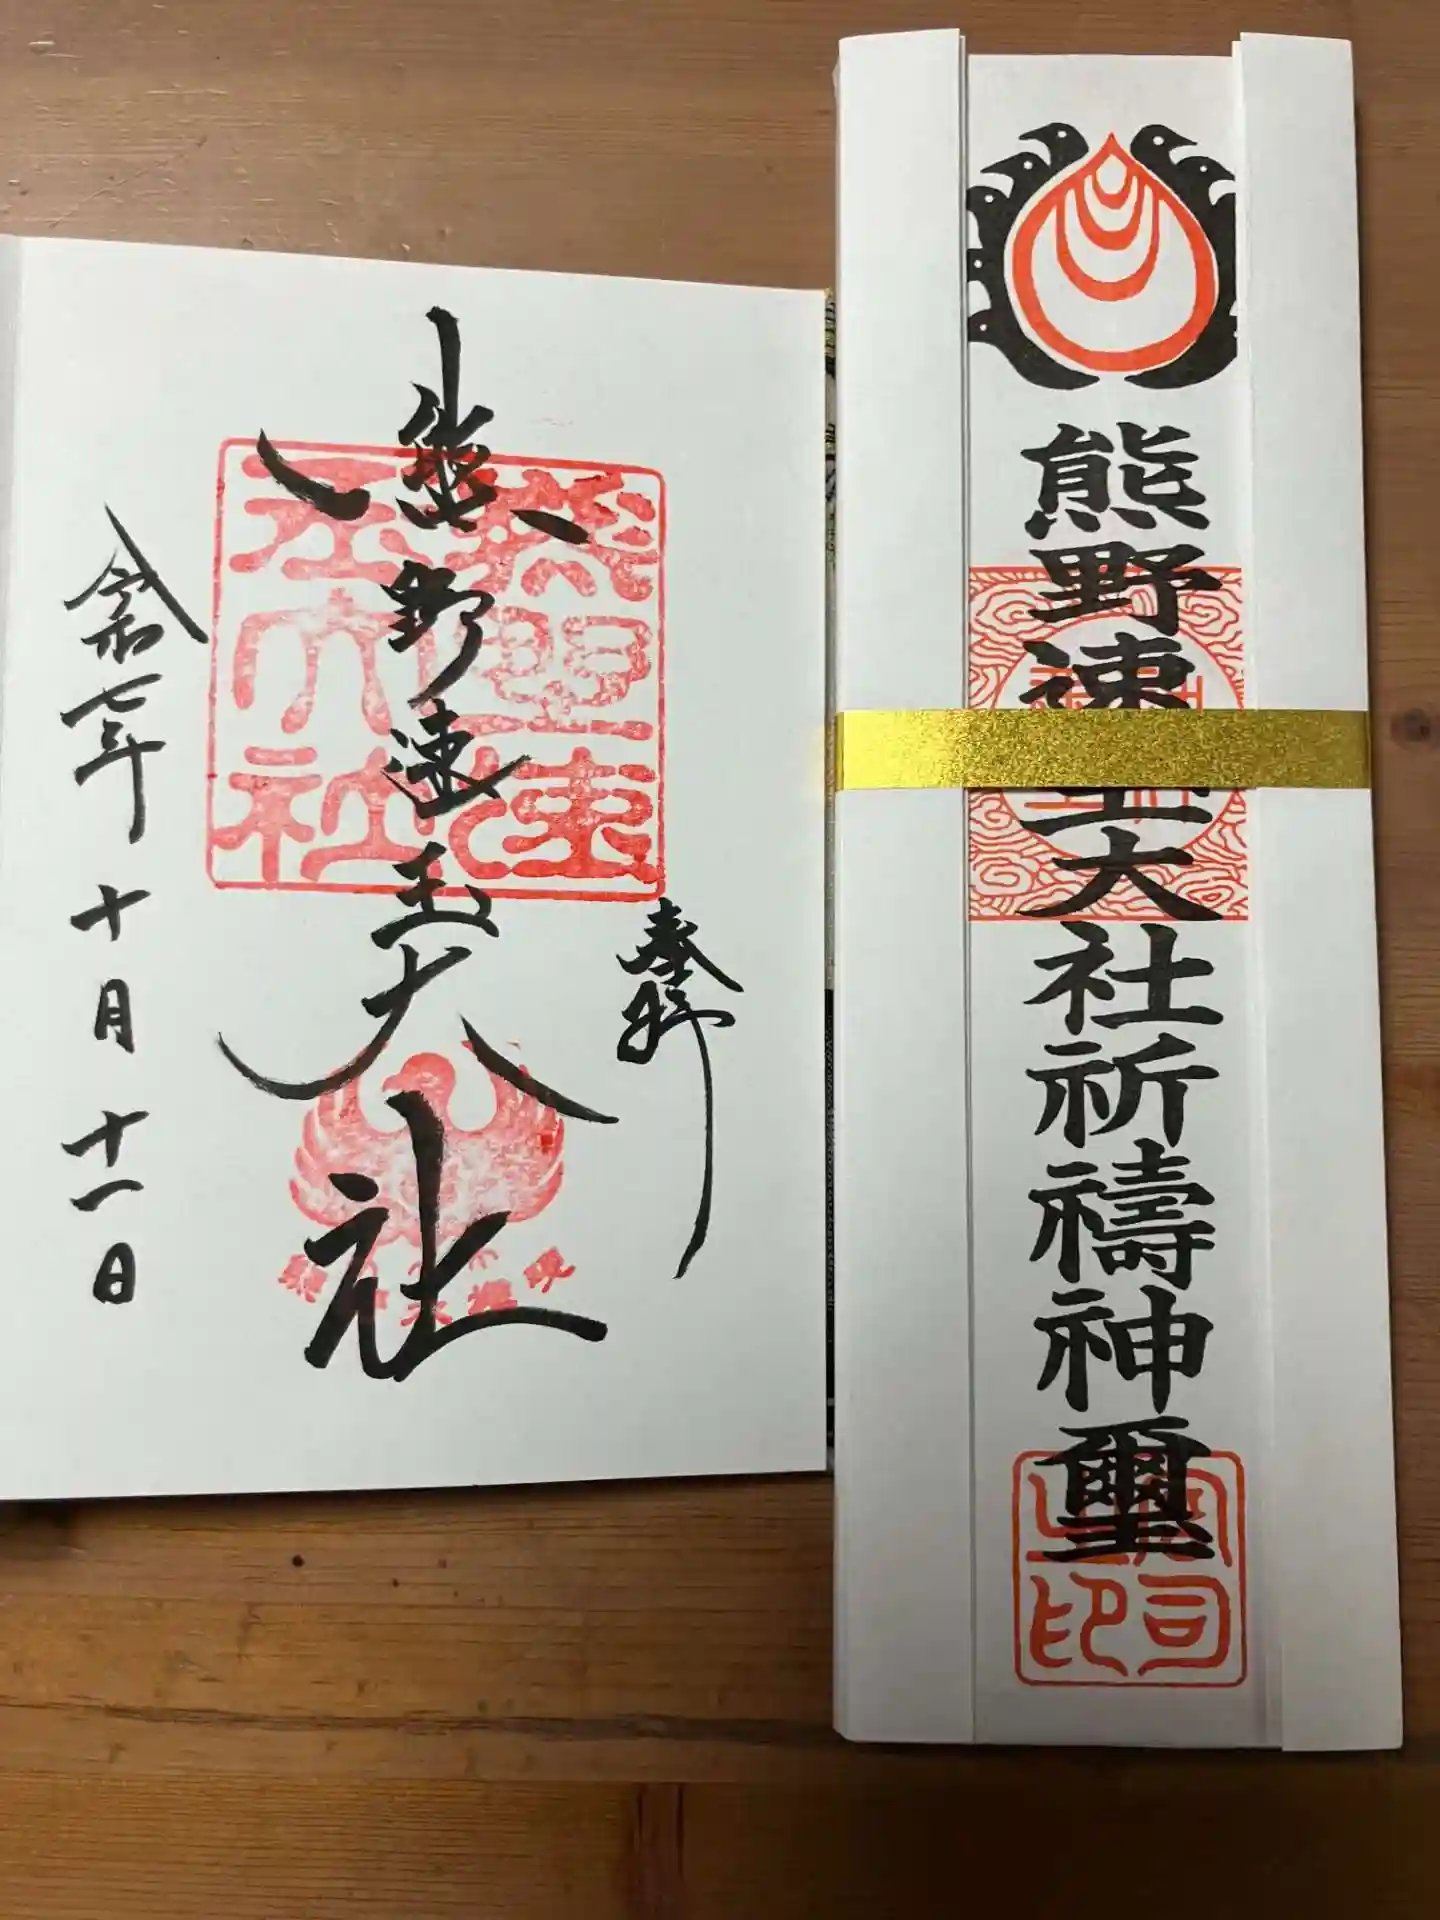 奉拝
熊野速玉大社
熊野速玉大社
令和七年十月十一日
熊野速玉大社祈禱神璽
宮司之印